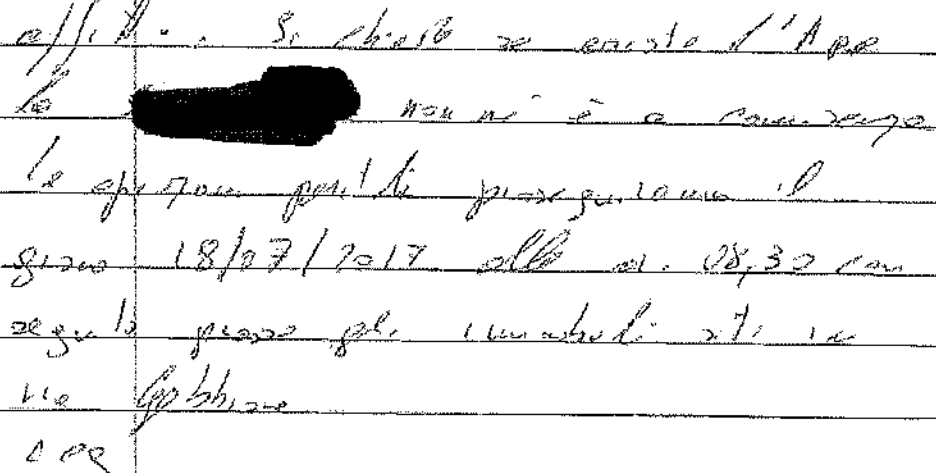 affitti. Si chiede se esiste l'Ape
la non mi è a conoscenza
le operazioni peritali proseguiranno il
giorno 18/07/2017 alle o. 08,30 con
seguito presso gli immobili siti in
via Gobbione